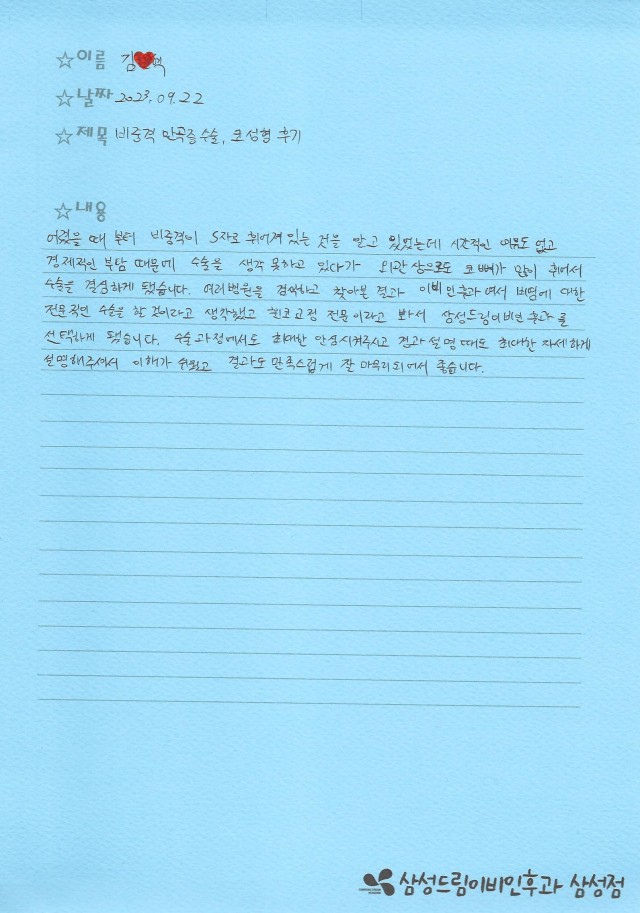 ☆이름 김❤혁
☆날짜 2023.09.22
☆제목 비중격 만곡증수술, 코성형 후기
☆내용
어렸을 때 부터 비중격이 S자로 휘어져 있는 것을 알고 있었는데 시간적인 여유도 없고
경제적인 부담 때문에 수술을 생각 못하고 있다가 외관상으로도 코뼈가 많이 휘어서
수술을 결심하게 됐습니다. 여러병원을 검색하고 찾아본 결과 이비인후과여서 비염에 대한
전문적인 수술을 할 것이라고 생각했고 휜코교정 전문이라고 봐서 삼성드림이비인후과를
선택하게 됐습니다. 수술과정에서도 최대한 안심시켜주시고 결과 설명 때도 최대한 자세하게
설명해주셔서 이해가 쉬웠고 결과도 만족스럽게 잘 마무리되어서 좋습니다.
삼성드림이비인후과 삼성점